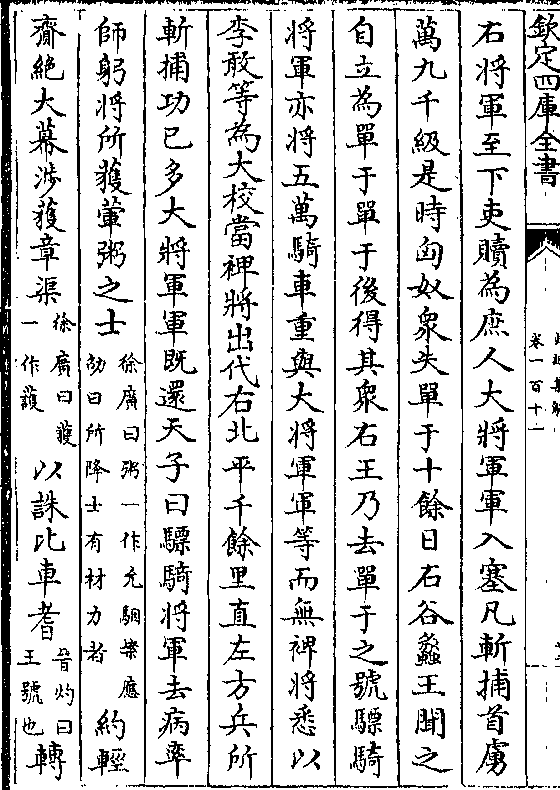 欽定四庫全書
卷一百十一
右將軍至下吏贖為庶人大將軍軍入塞凡斬捕首虜
萬九千級是時匈奴衆失單于十餘日右谷蠡王聞之
自立為單于單于後得其衆右王乃去單于之號驃騎
將軍亦將五萬騎車重與大將軍軍等而無裨將悉以
李敢等為大校當裨將出代右北平千餘里直左方兵所
斬捕功已多大將軍軍既還天子曰驃騎將軍去病率
師躬將所獲葷粥之士徐廣曰粥一作允駰案應劭曰所降士有材力者約輕
齎絶大幕涉獲章渠徐廣曰獲一作護以誅比車耆晉灼曰王號也轉